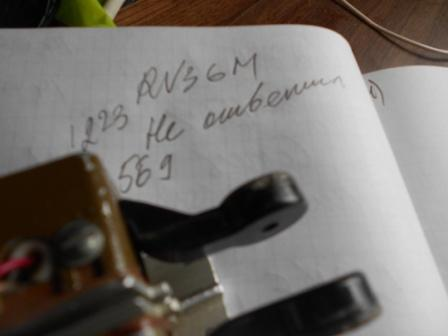 RV3GM
1223 Не ответил
569